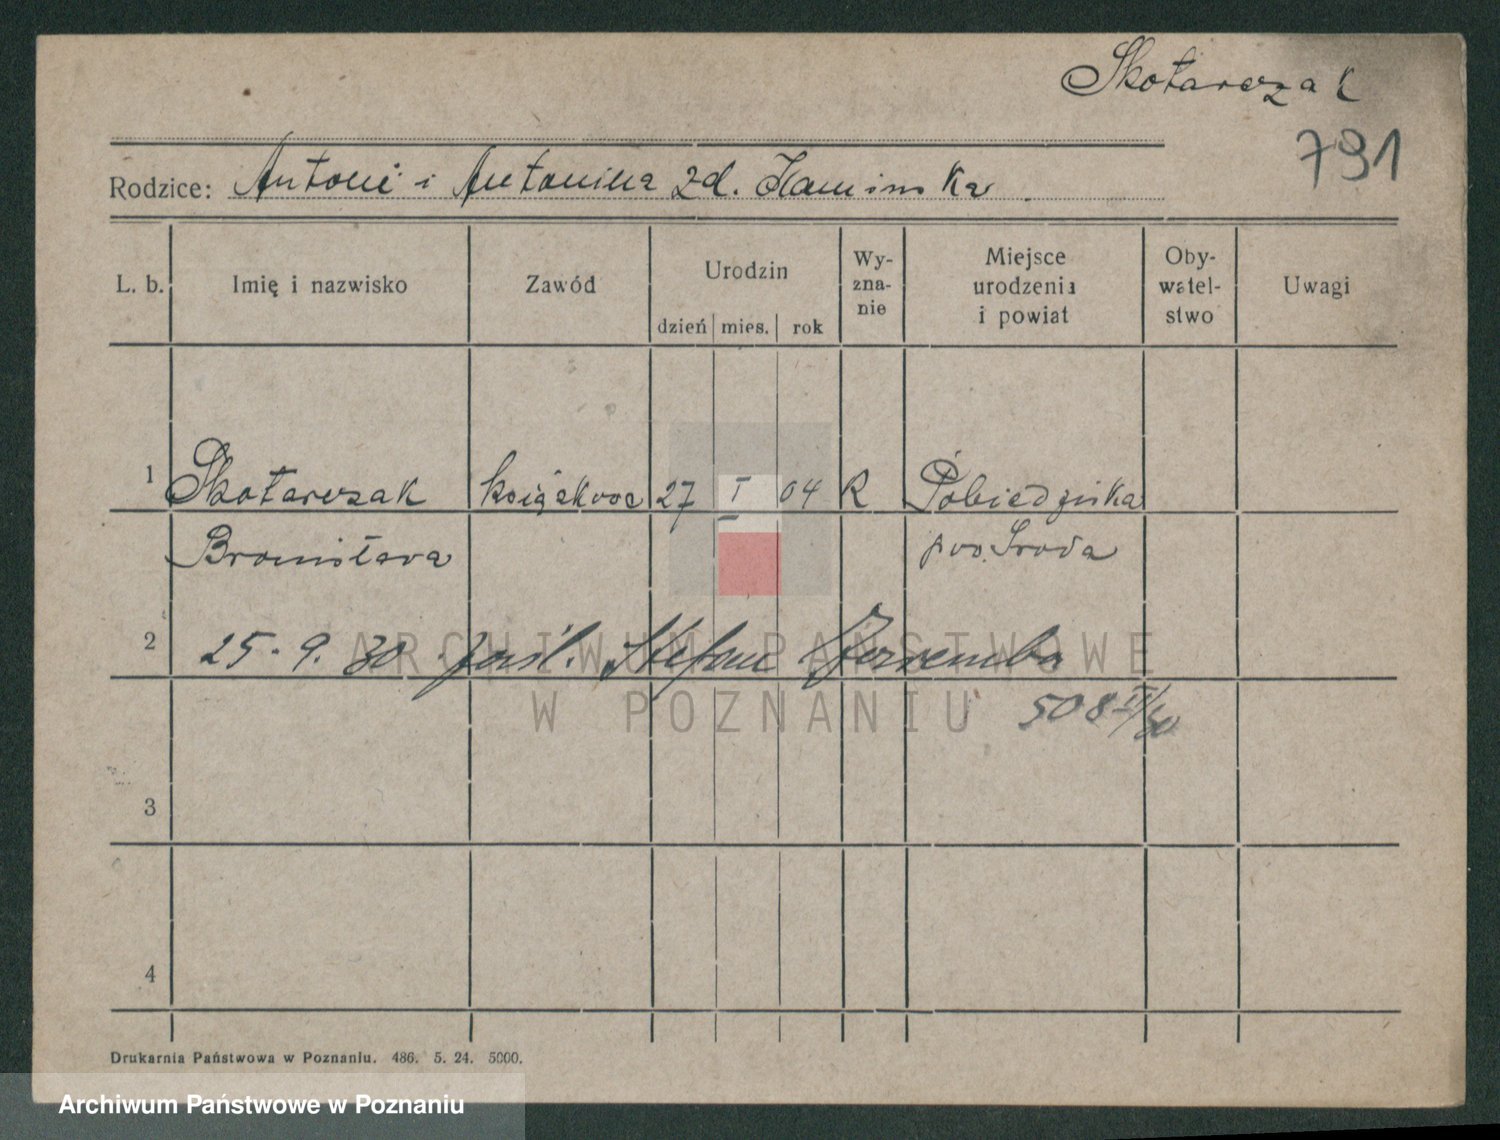 Skotarczak
791
Rodzice: Antoni i Antonina zd. Kamińska
L. b. Imię i nazwisko Zawód Urodzin dzień mies. rok Wy-zna-nie Miejsce urodzenia i powiat Oby-watel-stwo Uwagi
1 Skotarczak 27 I 04 R Pobiedziska
Bronisława pow. Środa
2 25. 9. 30 Stefan
508 II/30
3
4
ARCHIWUM PAŃSTWOWE
W POZNANIU
Drukarnia Państwowa w Poznaniu. 486. 5. 24. 5000.
Archiwum Państwowe w Poznaniu